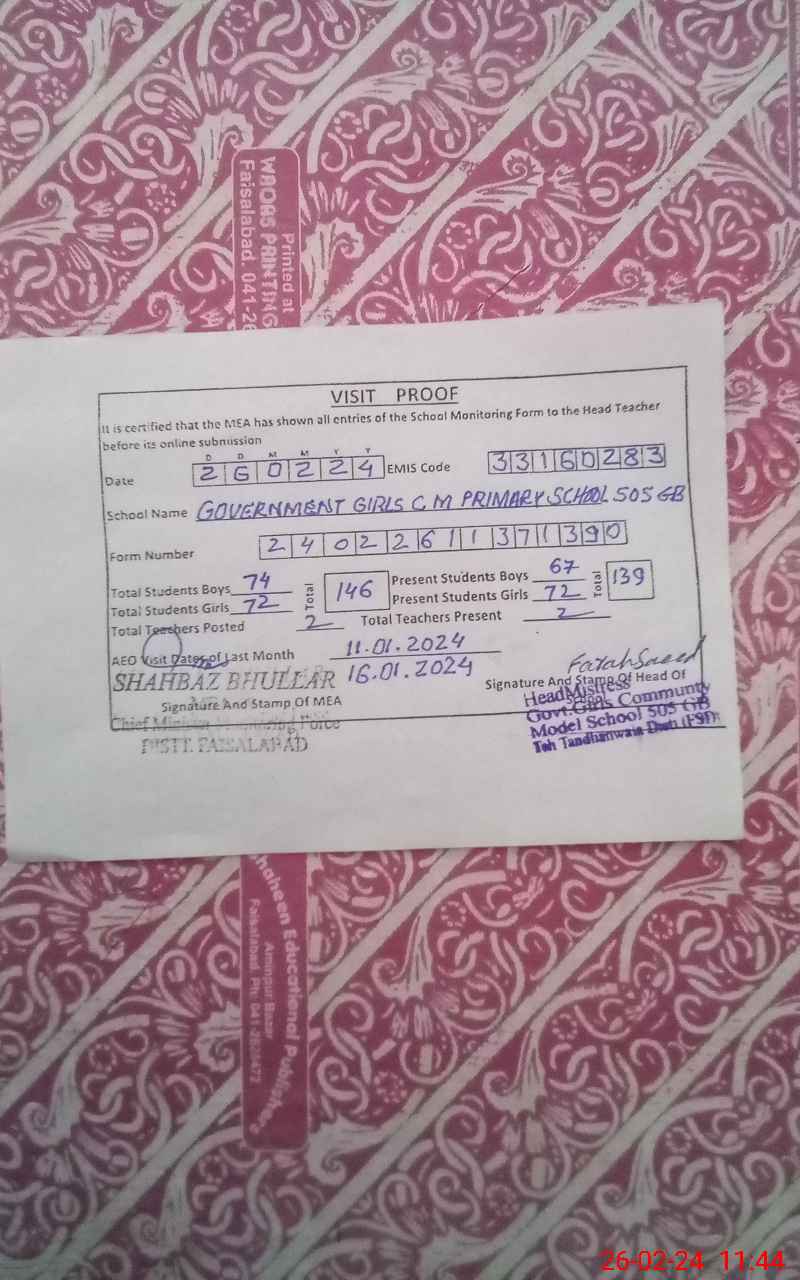 Printed at
WAQAS PRINTING
Faisalabad. 041-26
VISIT PROOF
It is certified that the MEA has shown all entries of the School Monitoring Form to the Head Teacher
before its online submission
D D M M Y Y
Date 2 6 0 2 2 4 EMIS Code 3 3 1 6 0 2 8 3
School Name GOVERNMENT GIRLS C M PRIMARY SCHOOL 505 GB
Form Number 2 4 0 2 2 6 1 1 3 7 1 3 9 0
Total Students Boys 74 Total 146 Present Students Boys 67 Total 139
Total Students Girls 72 Present Students Girls 72
Total Teachers Posted 2 Total Teachers Present 2
AEO Visit Dates of Last Month 11.01.2024
16.01.2024
SHAHBAZ BHULLAR
Farah Saeed
Signature And Stamp Of MEA
Signature And Stamp Of Head Of
School
Chief Minister Monitoring Force
DISTT. FAISALABAD
HeadMistress
Govt.Girls Community
Model School 505 GB
Teh Tandlianwala Distt (FSD)
Shaheen Educational Publishers
Aminpur Bazar
Faisalabad. Ph: 041-
26-02-24 11:44